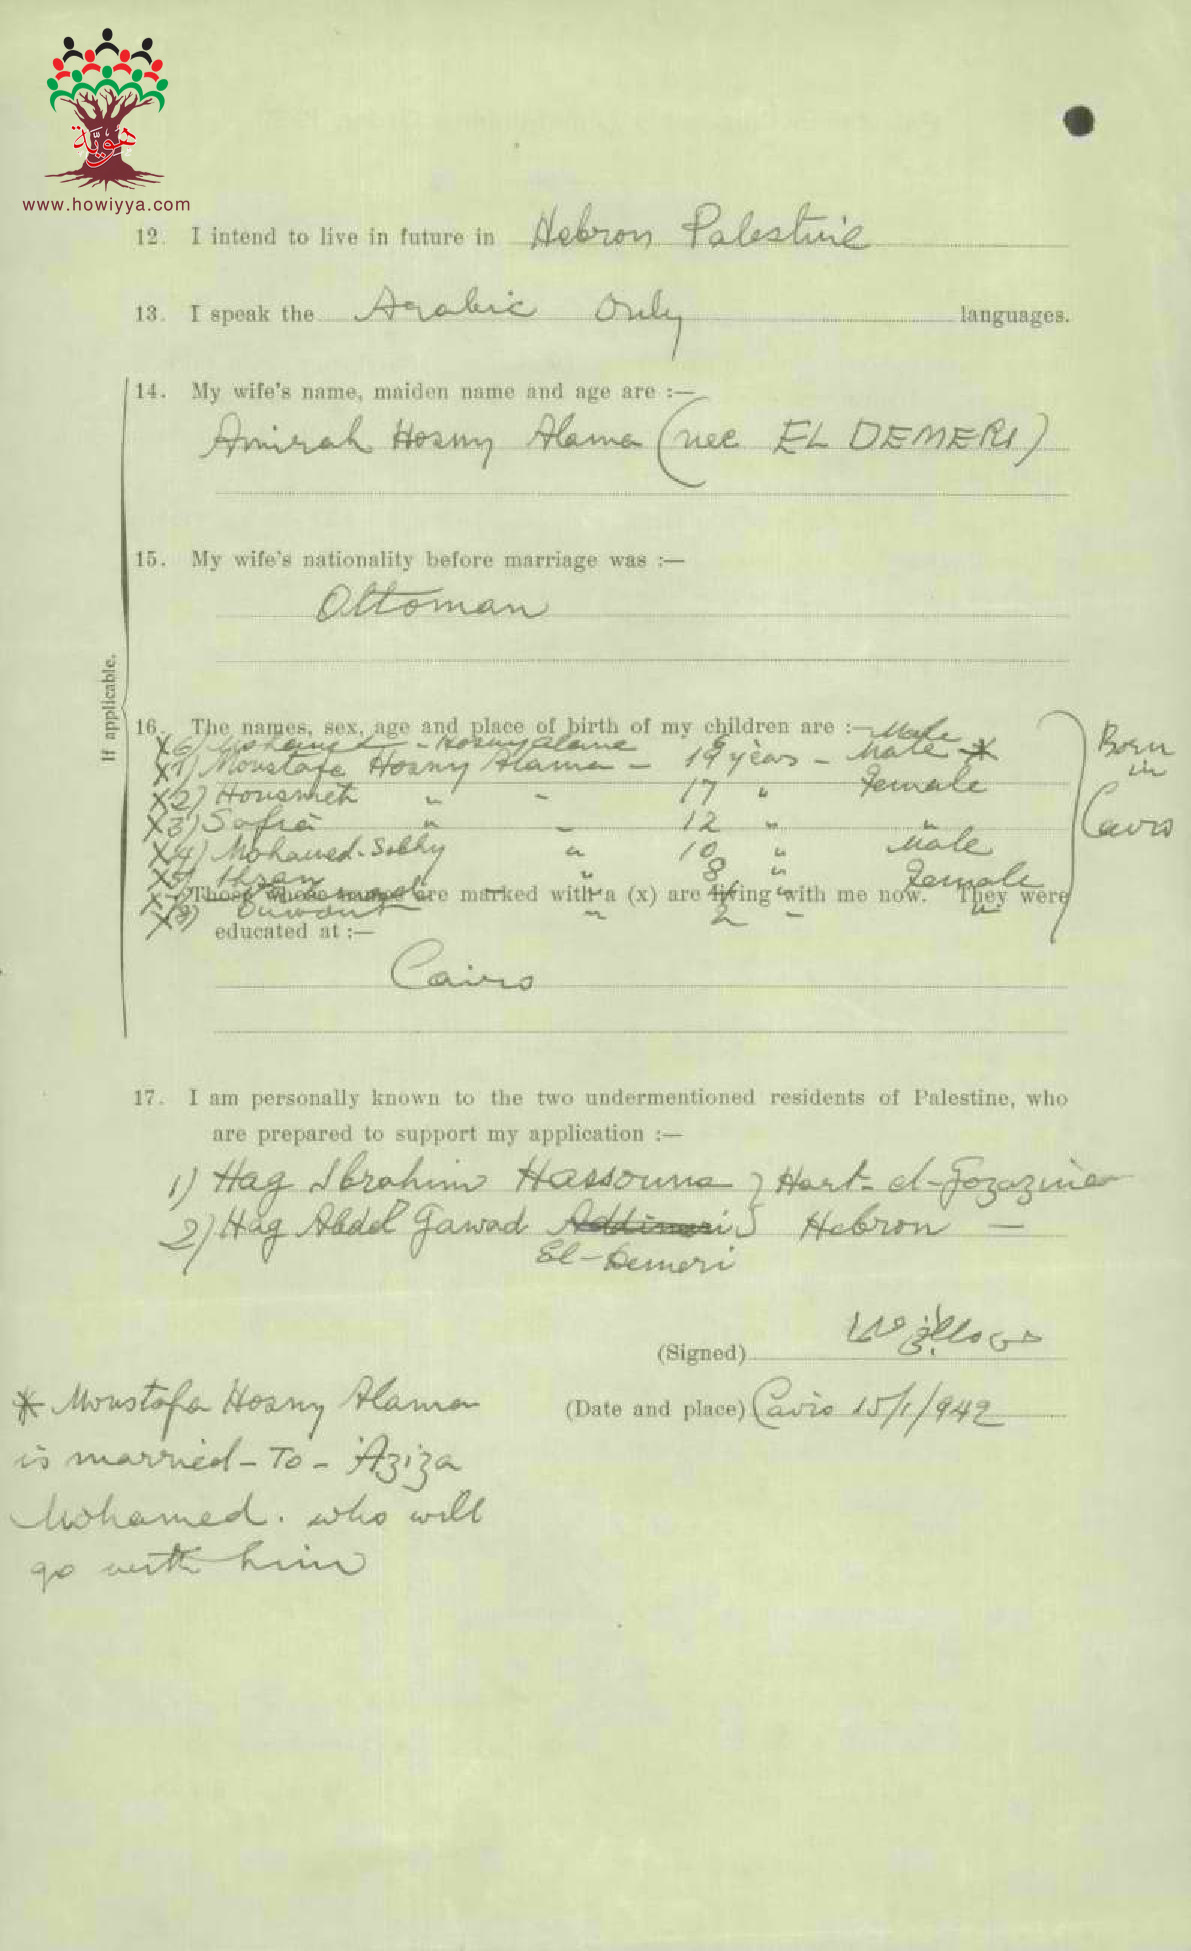 هويّة
www.howiyya.com
12. I intend to live in future in Hebron Palestine
13. I speak the Arabic Only languages.
14. My wife's name, maiden name and age are :—
Amirah Hosny Alama (nee EL DEMERI)
15. My wife's nationality before marriage was :—
Ottoman
If applicable.
16. The names, sex, age and place of birth of my children are :—
X6) Mohamed - Hosny Alama 6 Male
X1) Moustafa Hosny Alama — 19 years — Male *
X2) " - 17 " Female
X3) Safia " - 12 " "
X4) Mohamed Sobhy " 10 " Male
X5) Ihsan " 8 " Female
Born
in
Cairo
Those whose names are marked with a (x) are living with me now. They were
X8) " 2 -
educated at :—
Cairo
17. I am personally known to the two undermentioned residents of Palestine, who
are prepared to support my application :—
1) Hag Ibrahim Hassouna } Hart - el-Gozazine
2) Hag Abdel Gawad Addimeri } Hebron —
El-Demeri
(Signed)
(Date and place) Cairo 15/1/942
* Moustafa Hosny Alama
is married - To - Aziza
Mohamed. who will
go with him